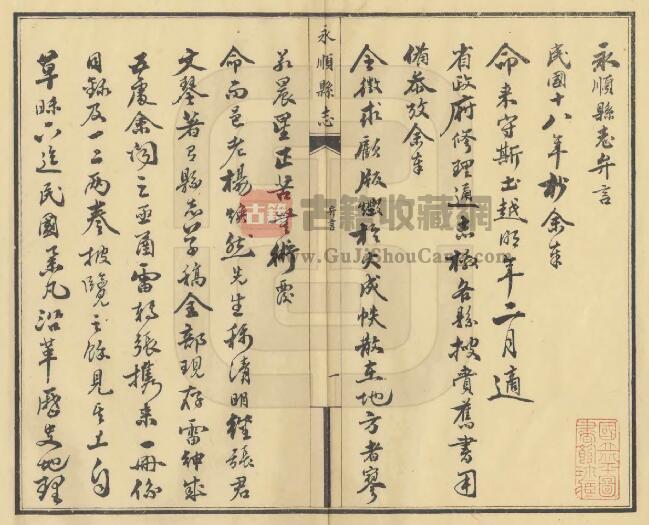 永順縣志弁言
民國十八年秋余奉
命來守斯土越明年二月適
省政府修理通志檄各縣搜賫舊書用
備叅攷余奉
令徵求
版燬於
成帙散在地方者寥
若晨星正苦無術
命而邑老楊煥然先生稱清明經張君
文琴著有縣志草稿全部現存雷紳
余詢之亟
雷
張攜來一冊係
目錄及一二兩卷披覽之餘見其上自
草昧下迄民國
凡沿革歷史地理
永順縣志
弁言
一
古籍
古籍收藏网
www.GuJiShouCang.Com